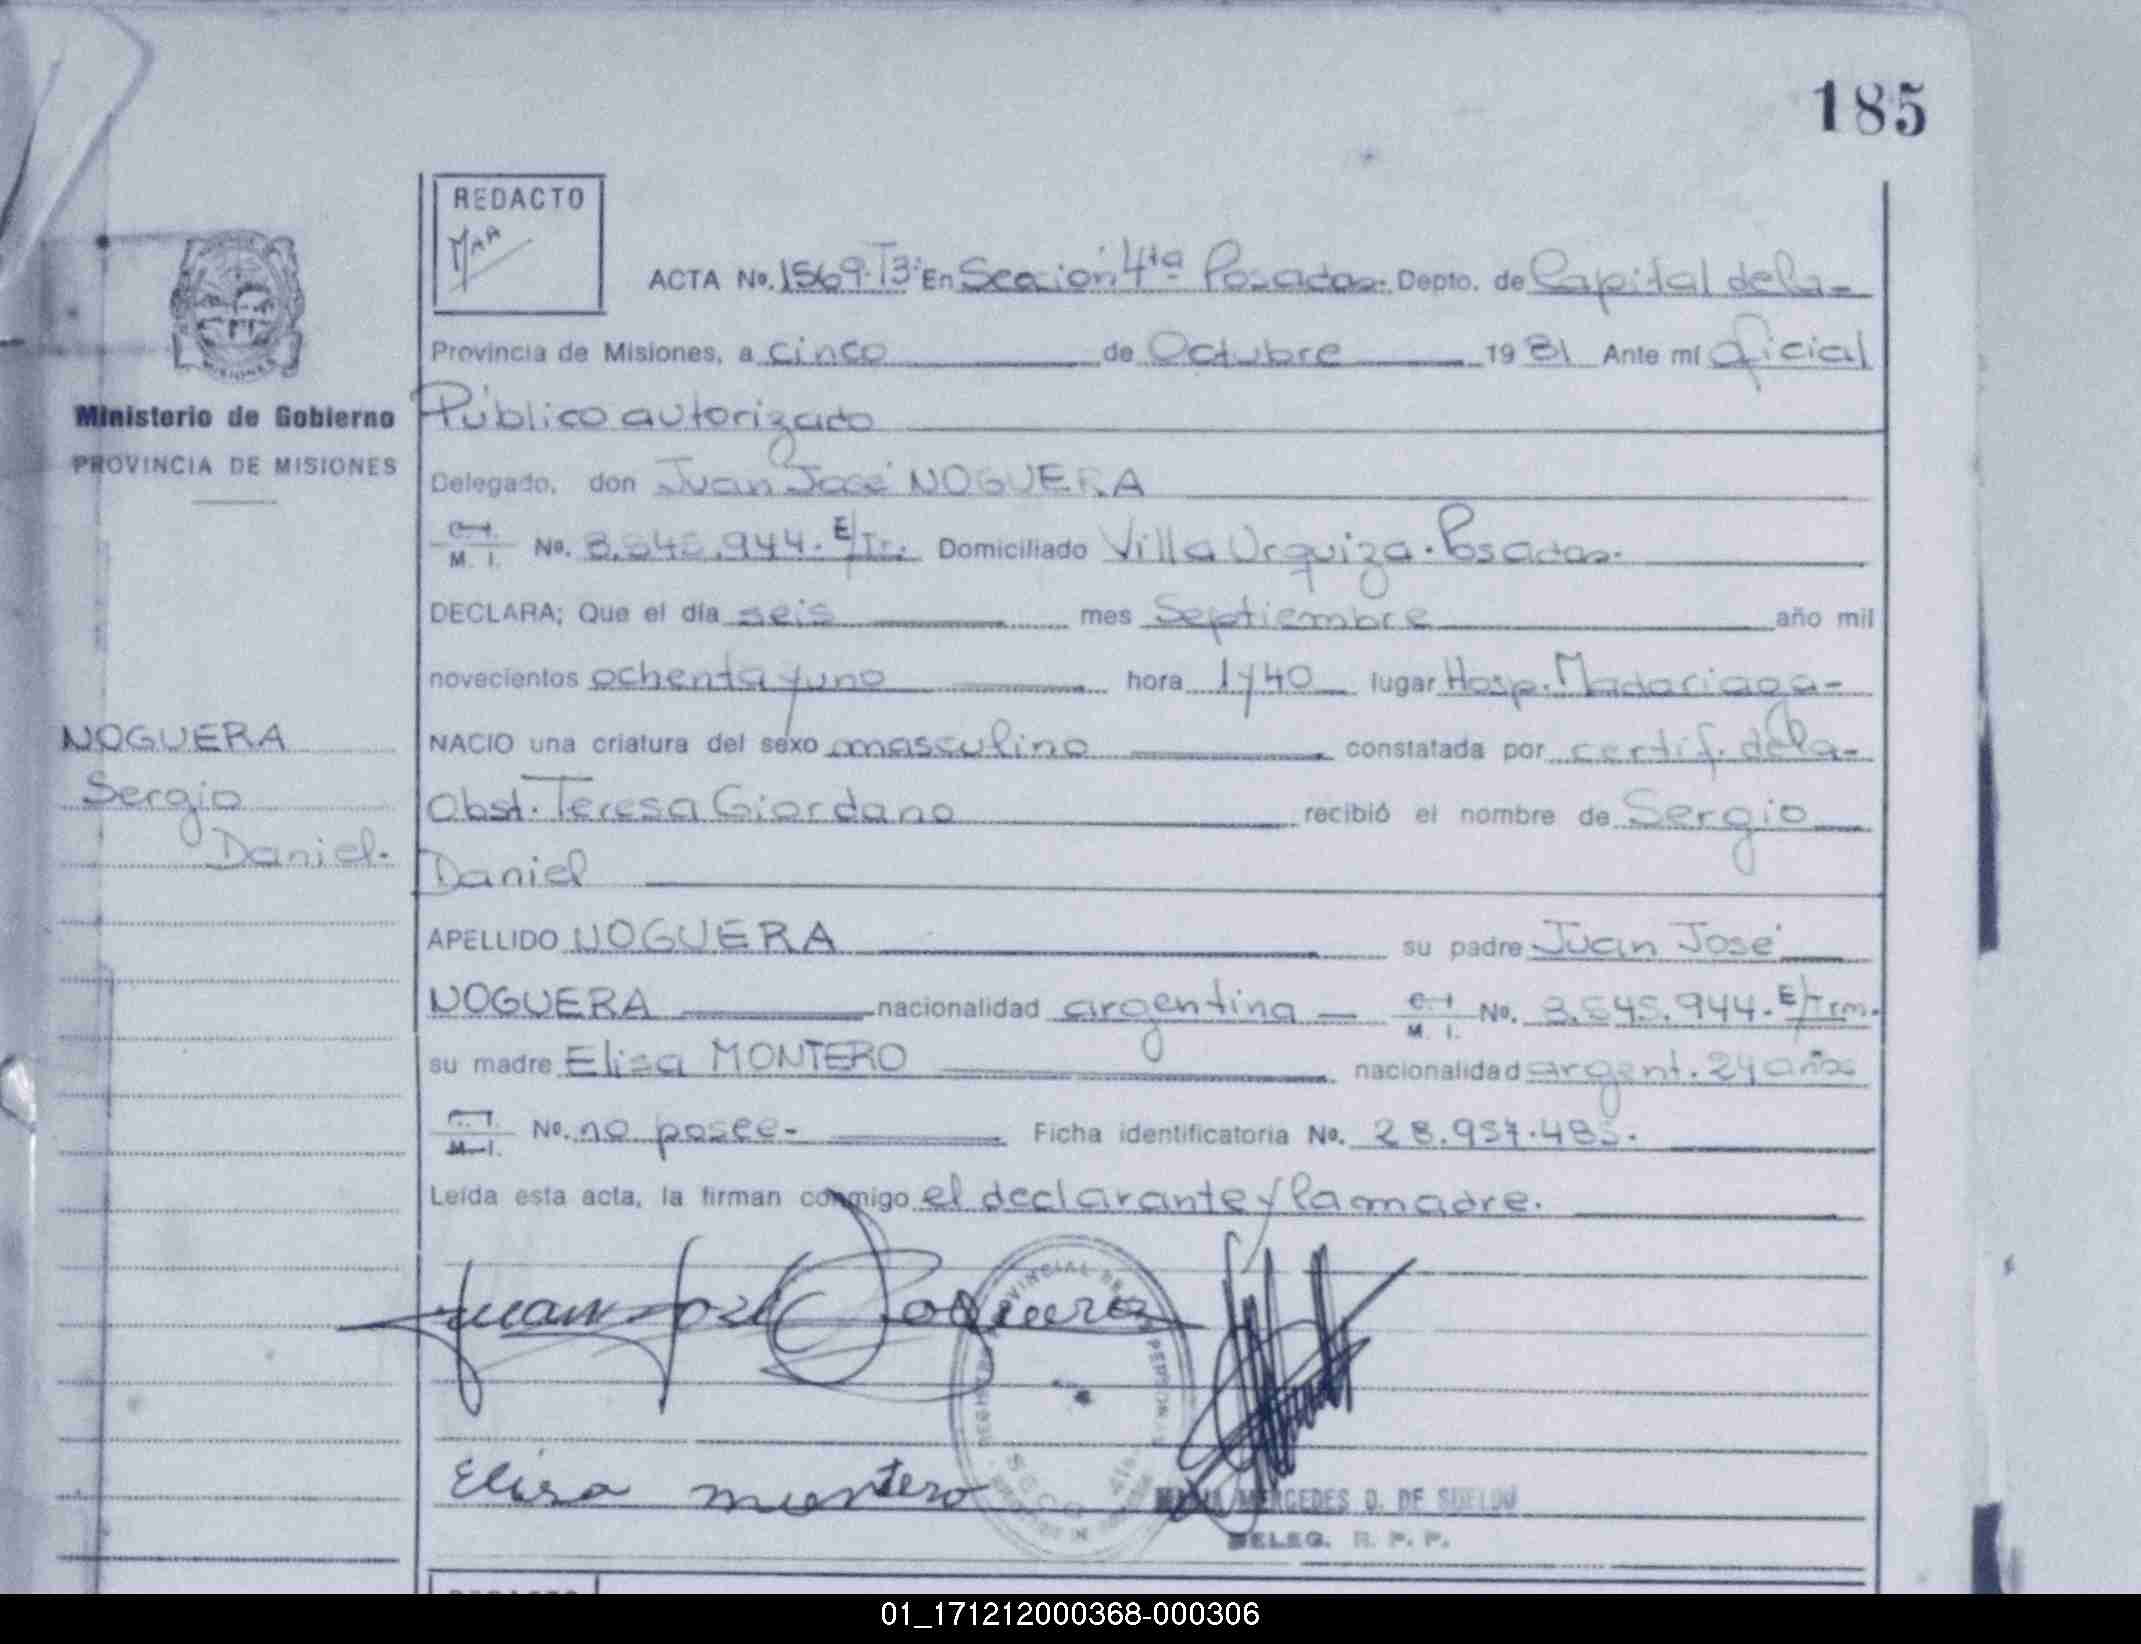 185
REDACTO
ACTA No. 1569-T3: En Sección 4ta Posadas. Depto. de Capital de la-
Provincia de Misiones, a cinco de Octubre 1981 Ante mí Oficial
Público autorizado
Ministerio de Gobierno
PROVINCIA DE MISIONES
Delegado, don Juan José NOGUERA
M. I. No. 8.545.944. E/Tr. Domiciliado Villa Urquiza. Posadas.
DECLARA; Que el día seis mes Septiembre año mil
novecientos ochenta y uno hora 1 y 40 lugar Hosp. Madariaga-
NOGUERA
Sergio
Daniel.
NACIO una criatura del sexo masculino constatada por certif. de la-
Obst. Teresa Giordano recibió el nombre de Sergio
Daniel
APELLIDO NOGUERA su padre Juan José
NOGUERA nacionalidad argentina M. I. No. 8.545.944. E/Trm.
su madre Elisa MONTERO nacionalidad argent. 24 años
No. no posee- Ficha identificatoria No. 28.957.485.
Leída esta acta, la firman conmigo el declarante y la madre.
Juan José Noguera
Elisa montero
MERCEDES D. DE SUELDO
DELEG. R. P. P.
01_171212000368-000306